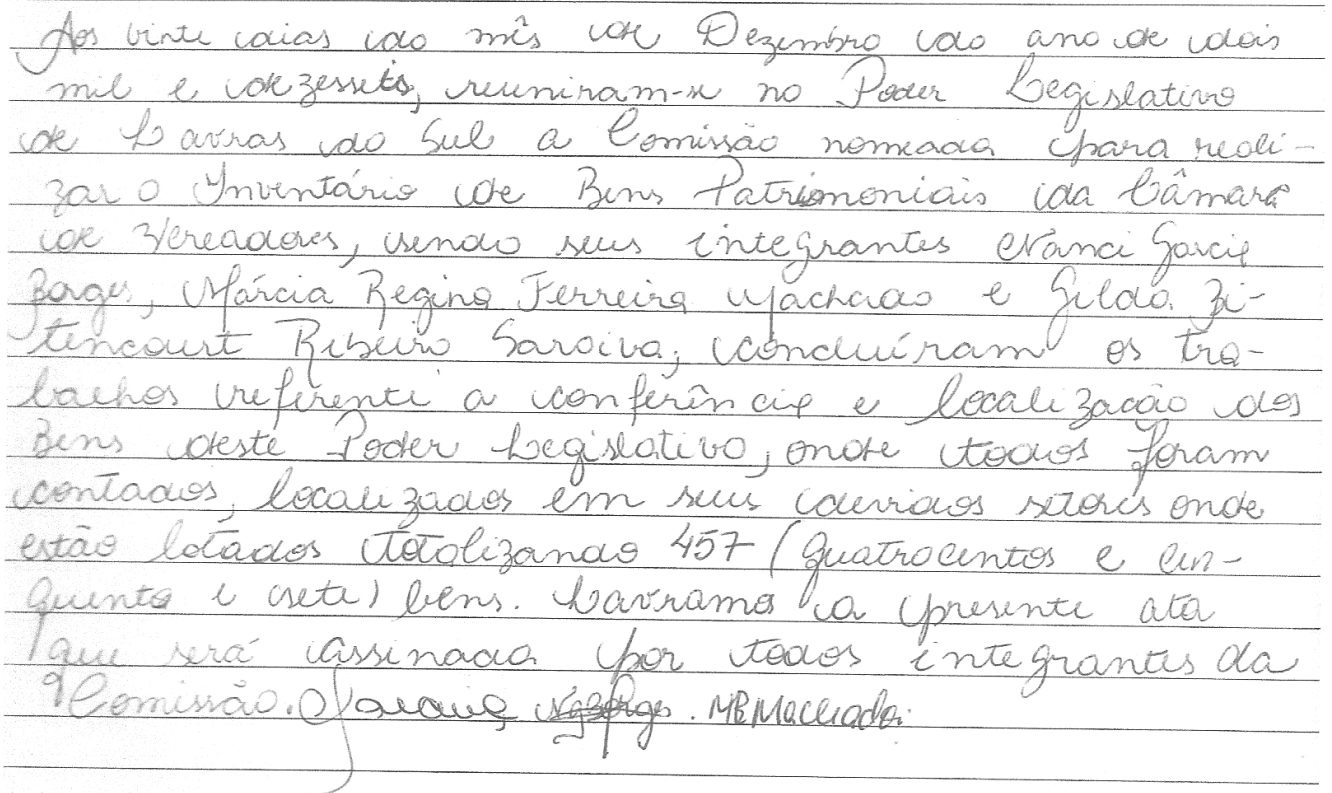 Aos vinte dias do mês de Dezembro do ano de dois
mil e dezessete, reuniram-se no Poder Legislativo
de Lavras do Sul a Comissão nomeada para reali-
zar o Inventário de Bens Patrimoniais da Câmara
de Vereadores, sendo seus integrantes Nanci Garcia
Borges, Márcia Regina Ferreira Machado e Gilda Bi-
tencourt Ribeiro Saraiva, concluíram os tra-
balhos referente a conferência e localização dos
Bens deste Poder Legislativo, onde todos foram
contados, localizados em seus devidos setores onde
estão lotados totalizando 457 (quatrocentos e cin-
quenta e sete) bens. Lavramos a presente ata
que será assinada por todos integrantes da
Comissão. Saraiva . MRMachado.